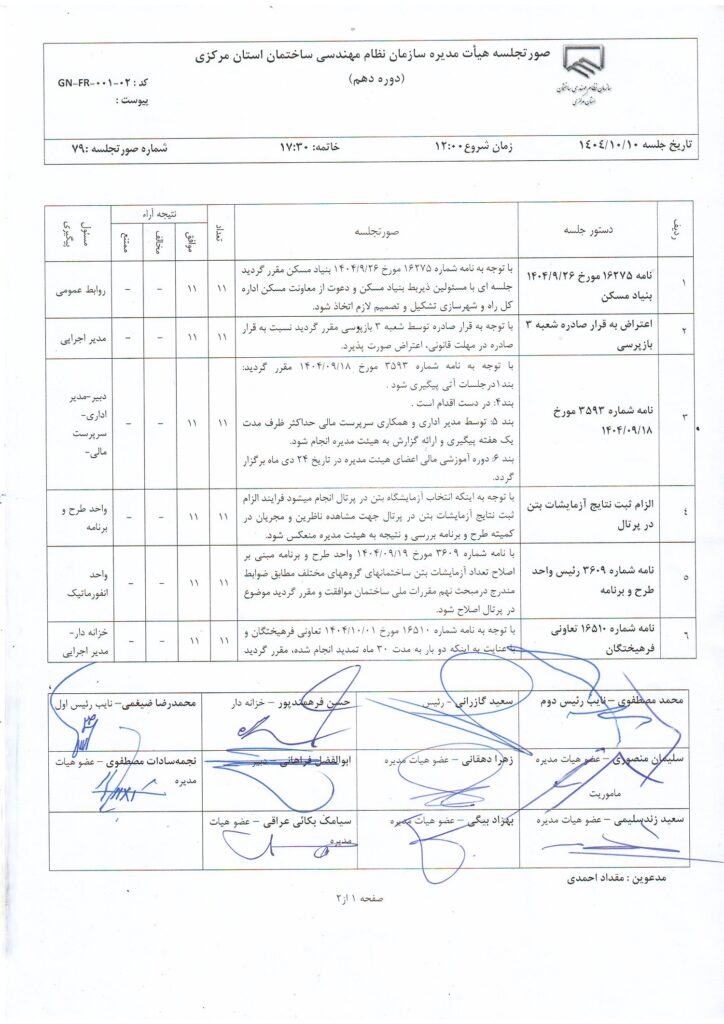 صورتجلسه هیأت مدیره سازمان نظام مهندسی ساختمان استان مرکزی
(دوره دهم)
سازمان نظام مهندسی ساختمان
استان مرکزی
کد : GN-FR-۰۰۱-۰۲
پیوست :
تاریخ جلسه ۱۴۰۴/۱۰/۱۰
زمان شروع ۱۲:۰۰
خاتمه: ۱۷:۳۰
شماره صورتجلسه :۷۹
ردیف
دستور جلسه
صورتجلسه
تعداد
نتیجه آراء
موافق
مخالف
ممتنع
مسئول
پیگیری
۱
نامه ۱۶۲۷۵ مورخ ۱۴۰۴/۹/۲۶
بنیاد مسکن
با توجه به نامه شماره ۱۶۲۷۵ مورخ ۱۴۰۴/۹/۲۶ بنیاد مسکن مقرر گردید
جلسه ای با مسئولین ذیربط بنیاد مسکن و دعوت از معاونت مسکن اداره
کل راه و شهرسازی تشکیل و تصمیم لازم اتخاذ شود.
۱۱
۱۱
-
-
روابط عمومی
۲
اعتراض به قرار صادره شعبه ۳
بازپرسی
با توجه به قرار صادره توسط شعبه ۳ بازپوسی مقرر گردید نسبت به قرار
صادره در مهلت قانونی، اعتراض صورت پذیرد.
۱۱
۱۱
-
-
مدیر اجرایی
۳
نامه شماره ۳۵۹۳ مورخ
۱۴۰۴/۰۹/۱۸
با توجه به نامه شماره ۳۵۹۳ مورخ ۱۴۰۴/۰۹/۱۸ مقرر گردید:
بند۱درجلسات آتی پیگیری شود .
بند۴: در دست اقدام است .
بند ۵: توسط مدیر اداری و همکاری سرپرست مالی حداکثر ظرف مدت
یک هفته پیگیری و ارائه گزارش به هیئت مدیره انجام شود.
بند ۶: دوره آموزشی مالی اعضای هیئت مدیره در تاریخ ۲۴ دی ماه برگزار
گردد.
۱۱
۱۱
-
-
دبیر-مدیر
اداری-
سرپرست
مالی-
۴
الزام ثبت نتایج آزمایشات بتن
در پرتال
با توجه به اینکه انتخاب آزمایشگاه بتن در پرتال انجام میشود فرایند الزام
ثبت نتایج آزمایشات بتن در پرتال جهت مشاهده ناظرین و مجریان در
کمیته طرح و برنامه بررسی و نتیجه به هیئت مدیره منعکس شود.
۱۱
۱۱
-
-
واحد طرح و
برنامه
۵
نامه شماره ۳۶۰۹ رئیس واحد
طرح و برنامه
با نامه شماره ۳۶۰۹ مورخ ۱۴۰۴/۰۹/۱۹ واحد طرح و برنامه مبنی بر
اصلاح تعداد آزمایشات بتن ساختمانهای گروههای مختلف مطابق ضوابط
مندرج درمبحث نهم مقررات ملی ساختمان موافقت و مقرر گردید موضوع
در پرتال اصلاح شود.
۱۱
۱۱
-
-
واحد
انفورماتیک
۶
نامه شماره ۱۶۵۱۰ تعاونی
فرهیختگان
با توجه به نامه شماره ۱۶۵۱۰ مورخ ۱۴۰۴/۱۰/۰۱ تعاونی فرهیختگان و
با عنایت به اینکه دو بار به مدت ۳۰ ماه تمدید انجام شده، مقرر گردید
۱۱
۱۱
-
-
خزانه دار-
مدیر اجرایی
محمد مصطفوی – نایب رئیس دوم
سعید گازرانی - رئیس
حسن فرهمندپور – خزانه دار
محمدرضا ضیغمی– نایب رئیس اول
سلیمان منصوری – عضو هیات مدیره
ماموریت
زهرا دهقانی – عضو هیات مدیره
ابوالفضل فراهانی – دبیر
نجمه‌سادات مصطفوی – عضو هیات
مدیره
سعید زندسلیمی – عضو هیات مدیره
بهزاد بیگی – عضو هیات مدیره
سیامک یکائی عراقی – عضو هیات
مدیره
مدعوین : مقداد احمدی
صفحه ۱ از۲